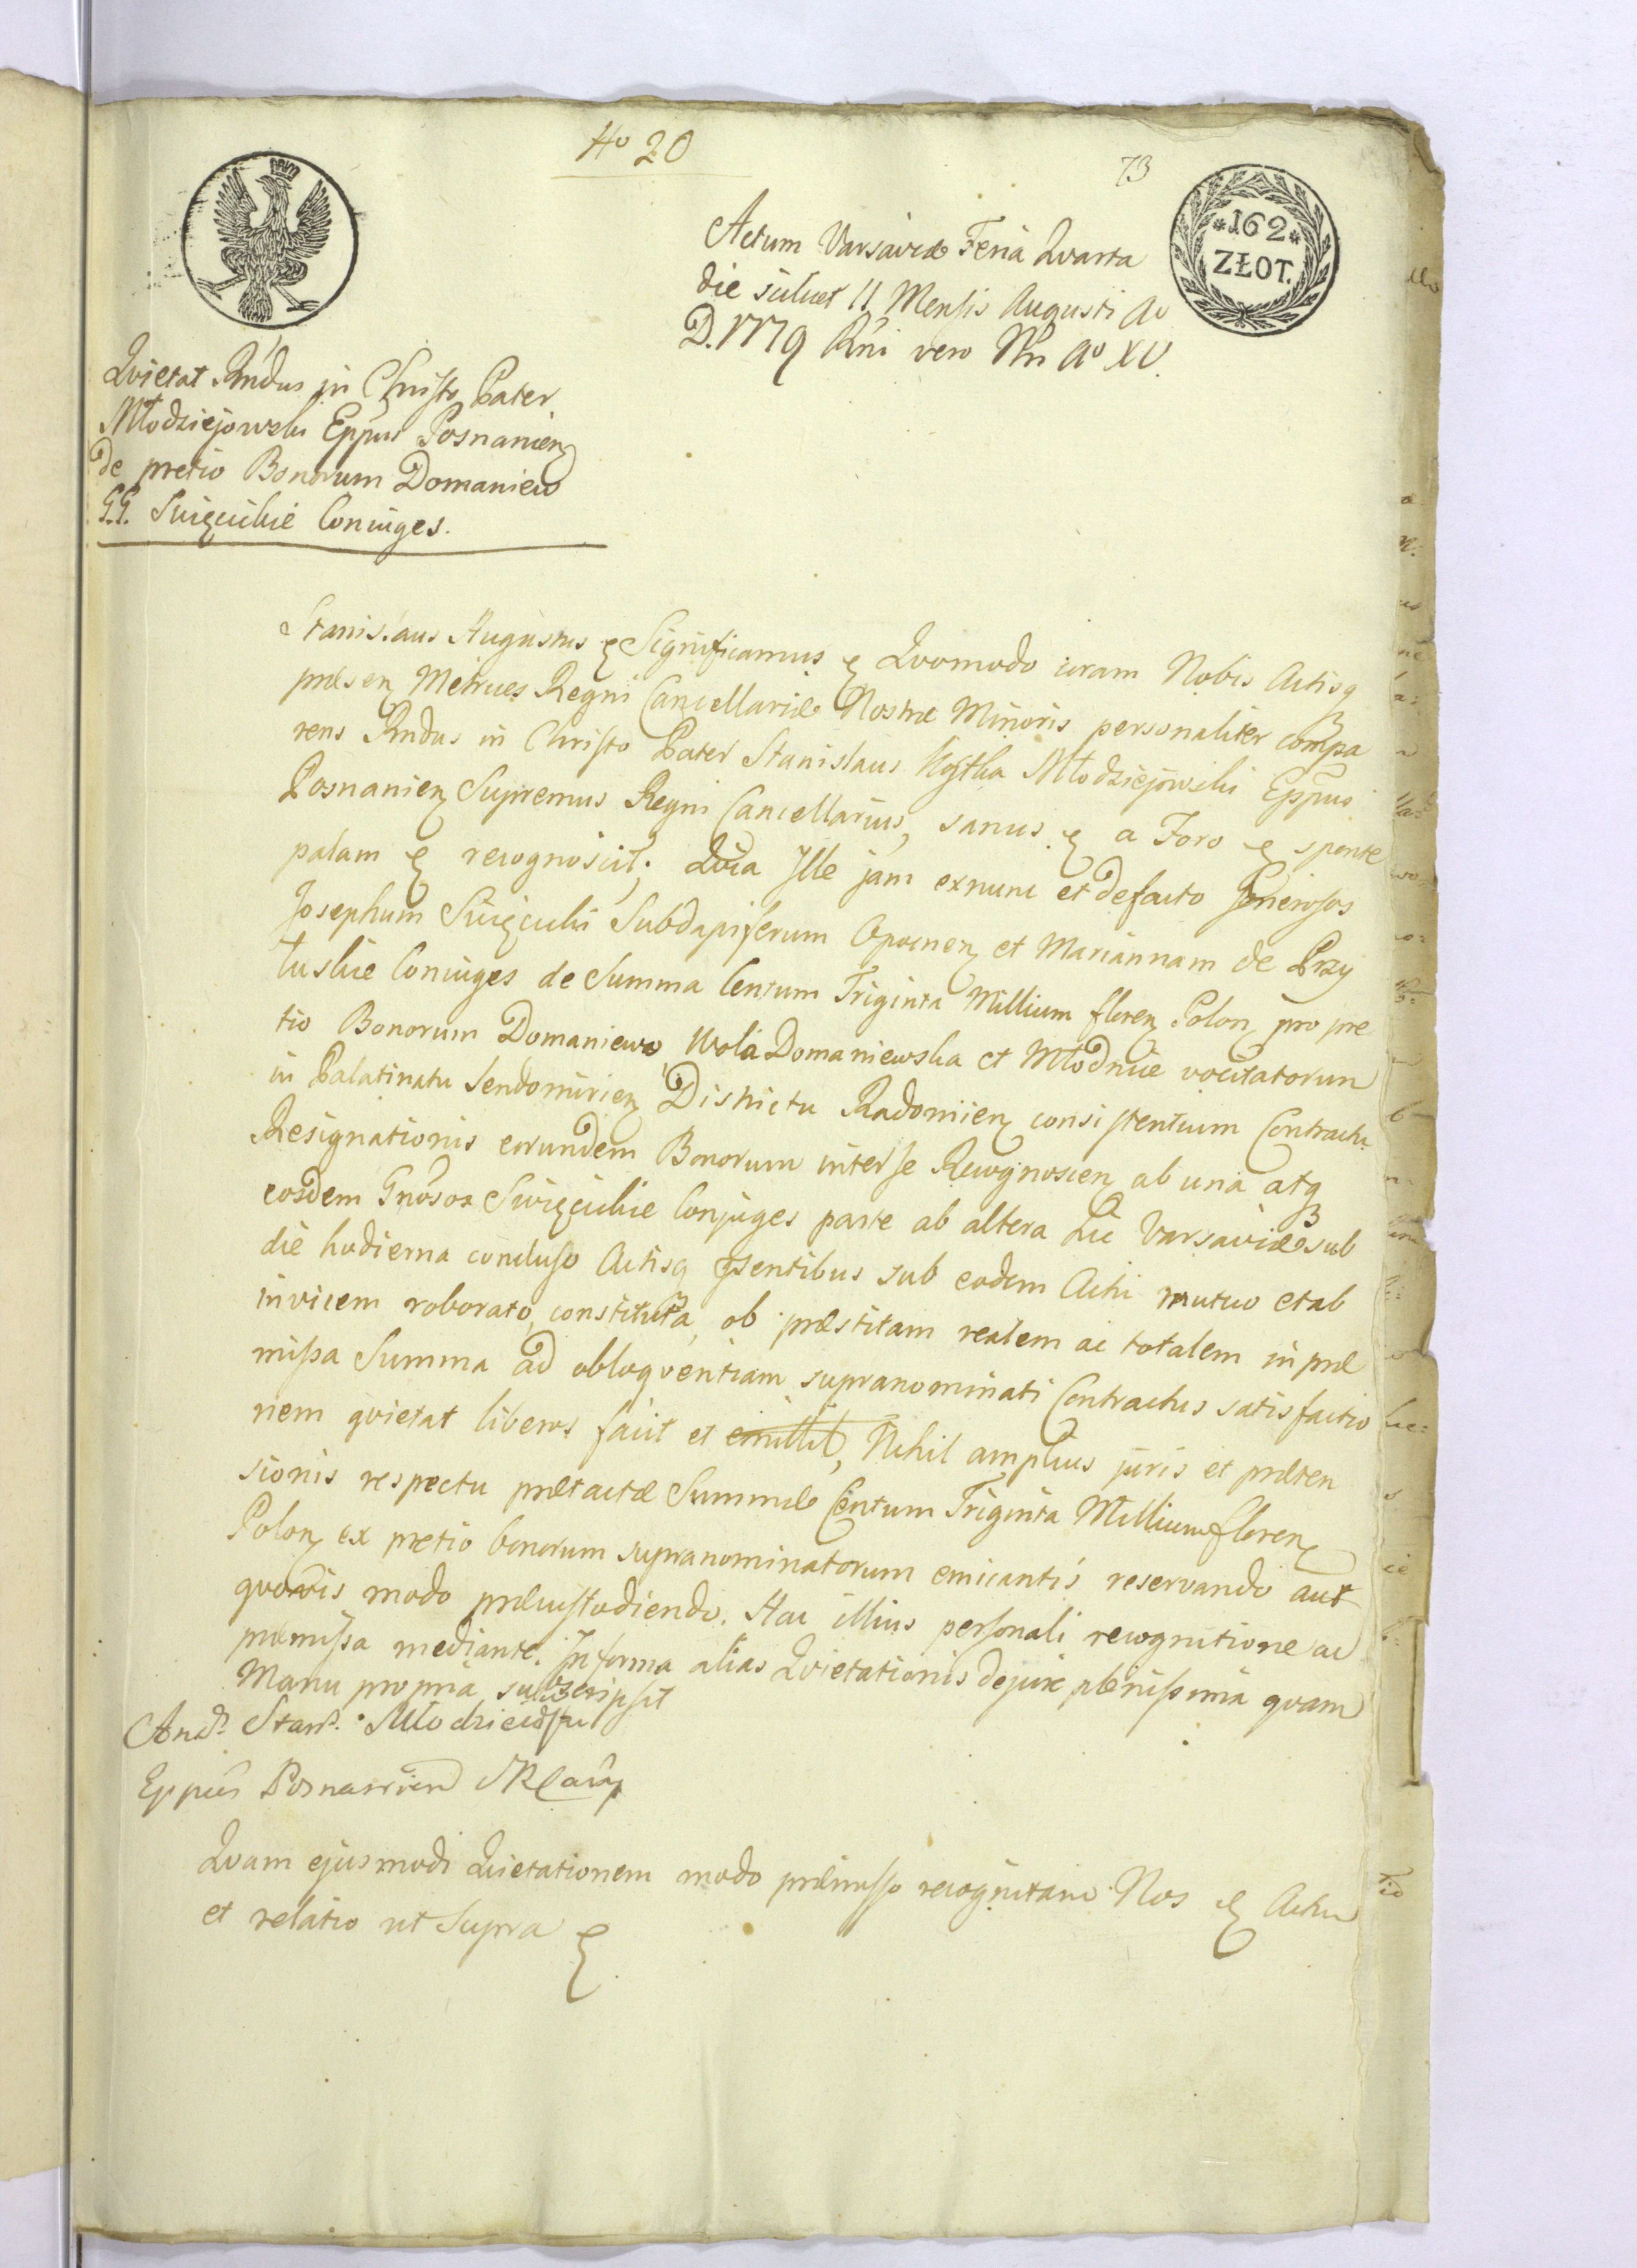 No 20
73
*162*
ZŁOT.
Actum Varsaviæ Feria Qvarta
die scilicet 11 Mensis Augusti Ao
D. 1779 Rni vero Nri Ao XV.
Qvietat Rndus in Christo Pater
Młodziejowski Eppus Posnanien
de pretio Bonorum Domaniew
G.G. Swięcickie Coniuges.
Stanislaus Augustus & Significamus & Qvomodo coram Nobis Actisq
præsen Metrices Regni Cancellariæ Nostræ Minoris personaliter compa
rens Rndus in Christo Pater Stanislaus Kostka Młodziejowski Eppus
Posnanien Supremus Regni Cancellarius, sanus & a Foro & sponte
palam & recognoscit; Qvia Ille jam exnunc et defacto Generosos
Josephum Swięcicki Subdapiferum Opocnen et Mariannam de Przy
tuskie Coniuges de Summa Centum Triginta Millium floren Polon pro pre
tio Bonorum Domaniewo, Wola Domaniewska et Młodnice vocitatorum
in Palatinatu Sendomirien Districtu Radomien consistentium Contractu
Resignationis eorundem Bonorum inter se Recognoscen ab una atq
eosdem Gnosos Swięcickie Conjuges parte ab altera hic Varsaviæ sub
die hodierna concluso Actisq psentibus sub eodem Actu mutuo et ab
invicem roborato, constituta, ob præstitam realem ac totalem in præ
missa Summa ad obloqventiam supranominati Contractus satisfactio
nem qvietat liberos facit et emittit, Nihil amplius juris et præten
sionis respectu prætactæ Summæ Centum Triginta Millium floren
Polon ex pretio bonorum supranominatorum emicantis reservando aut
qvovis modo præcustodiendo. Hac illius personali recognitione ac
præmissa mediante. In forma alias Qvietationis de jure plenissima qvam
Manu propria subscripsit
And. Stan. Młodziejowski
Eppus Posnanien
Qvam ejusmodi Qvietationem modo præmisso recognitam Nos & Actu
et relatio ut Supra &